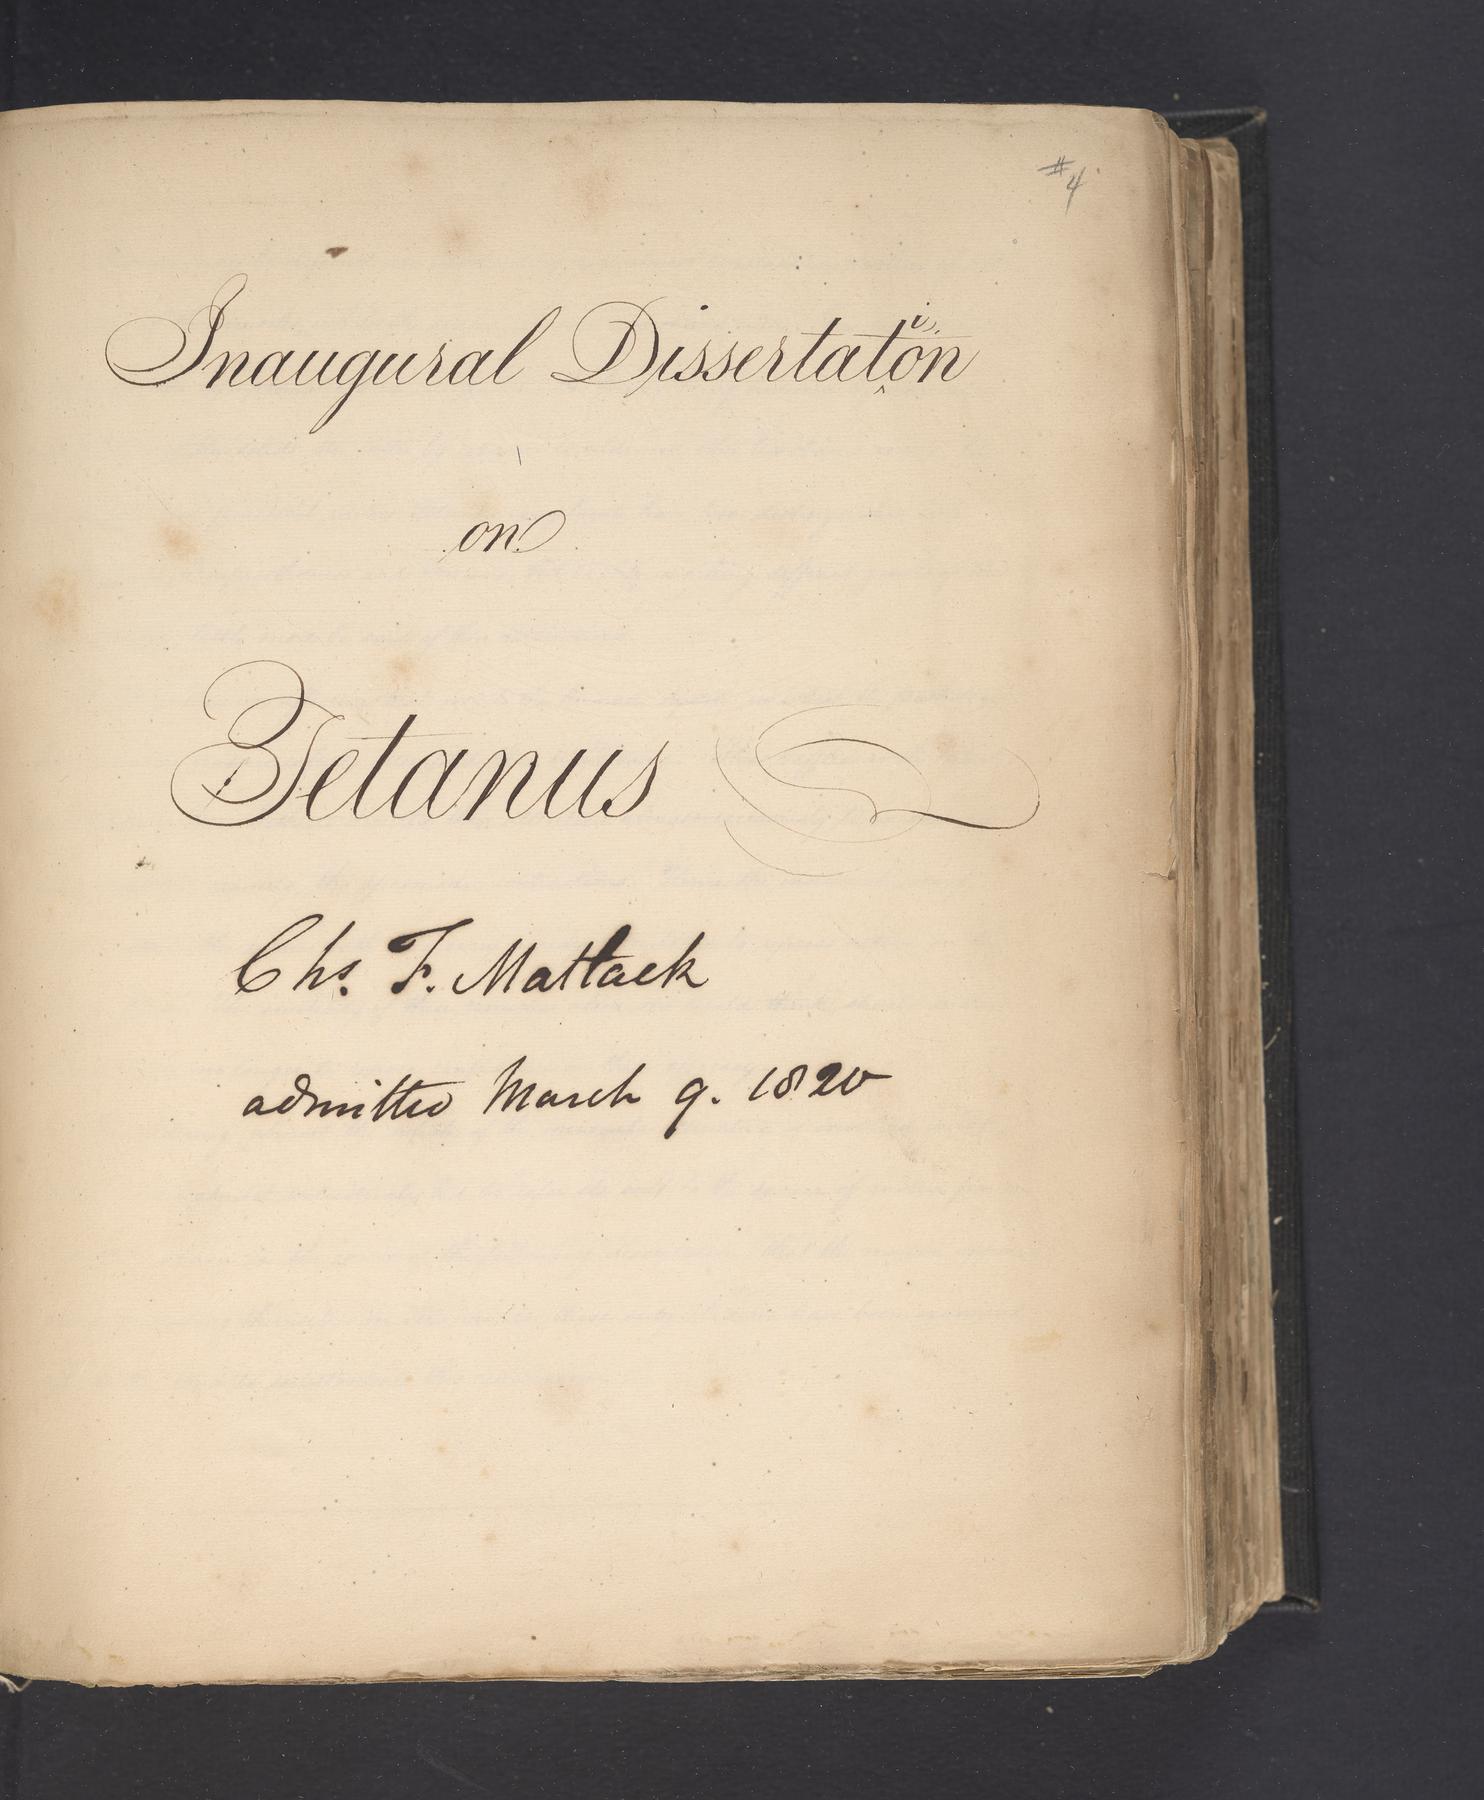 #4
Inaugural Dissertation
on
Tetanus
Chs. F. Matlack
admitted March 9. 1820